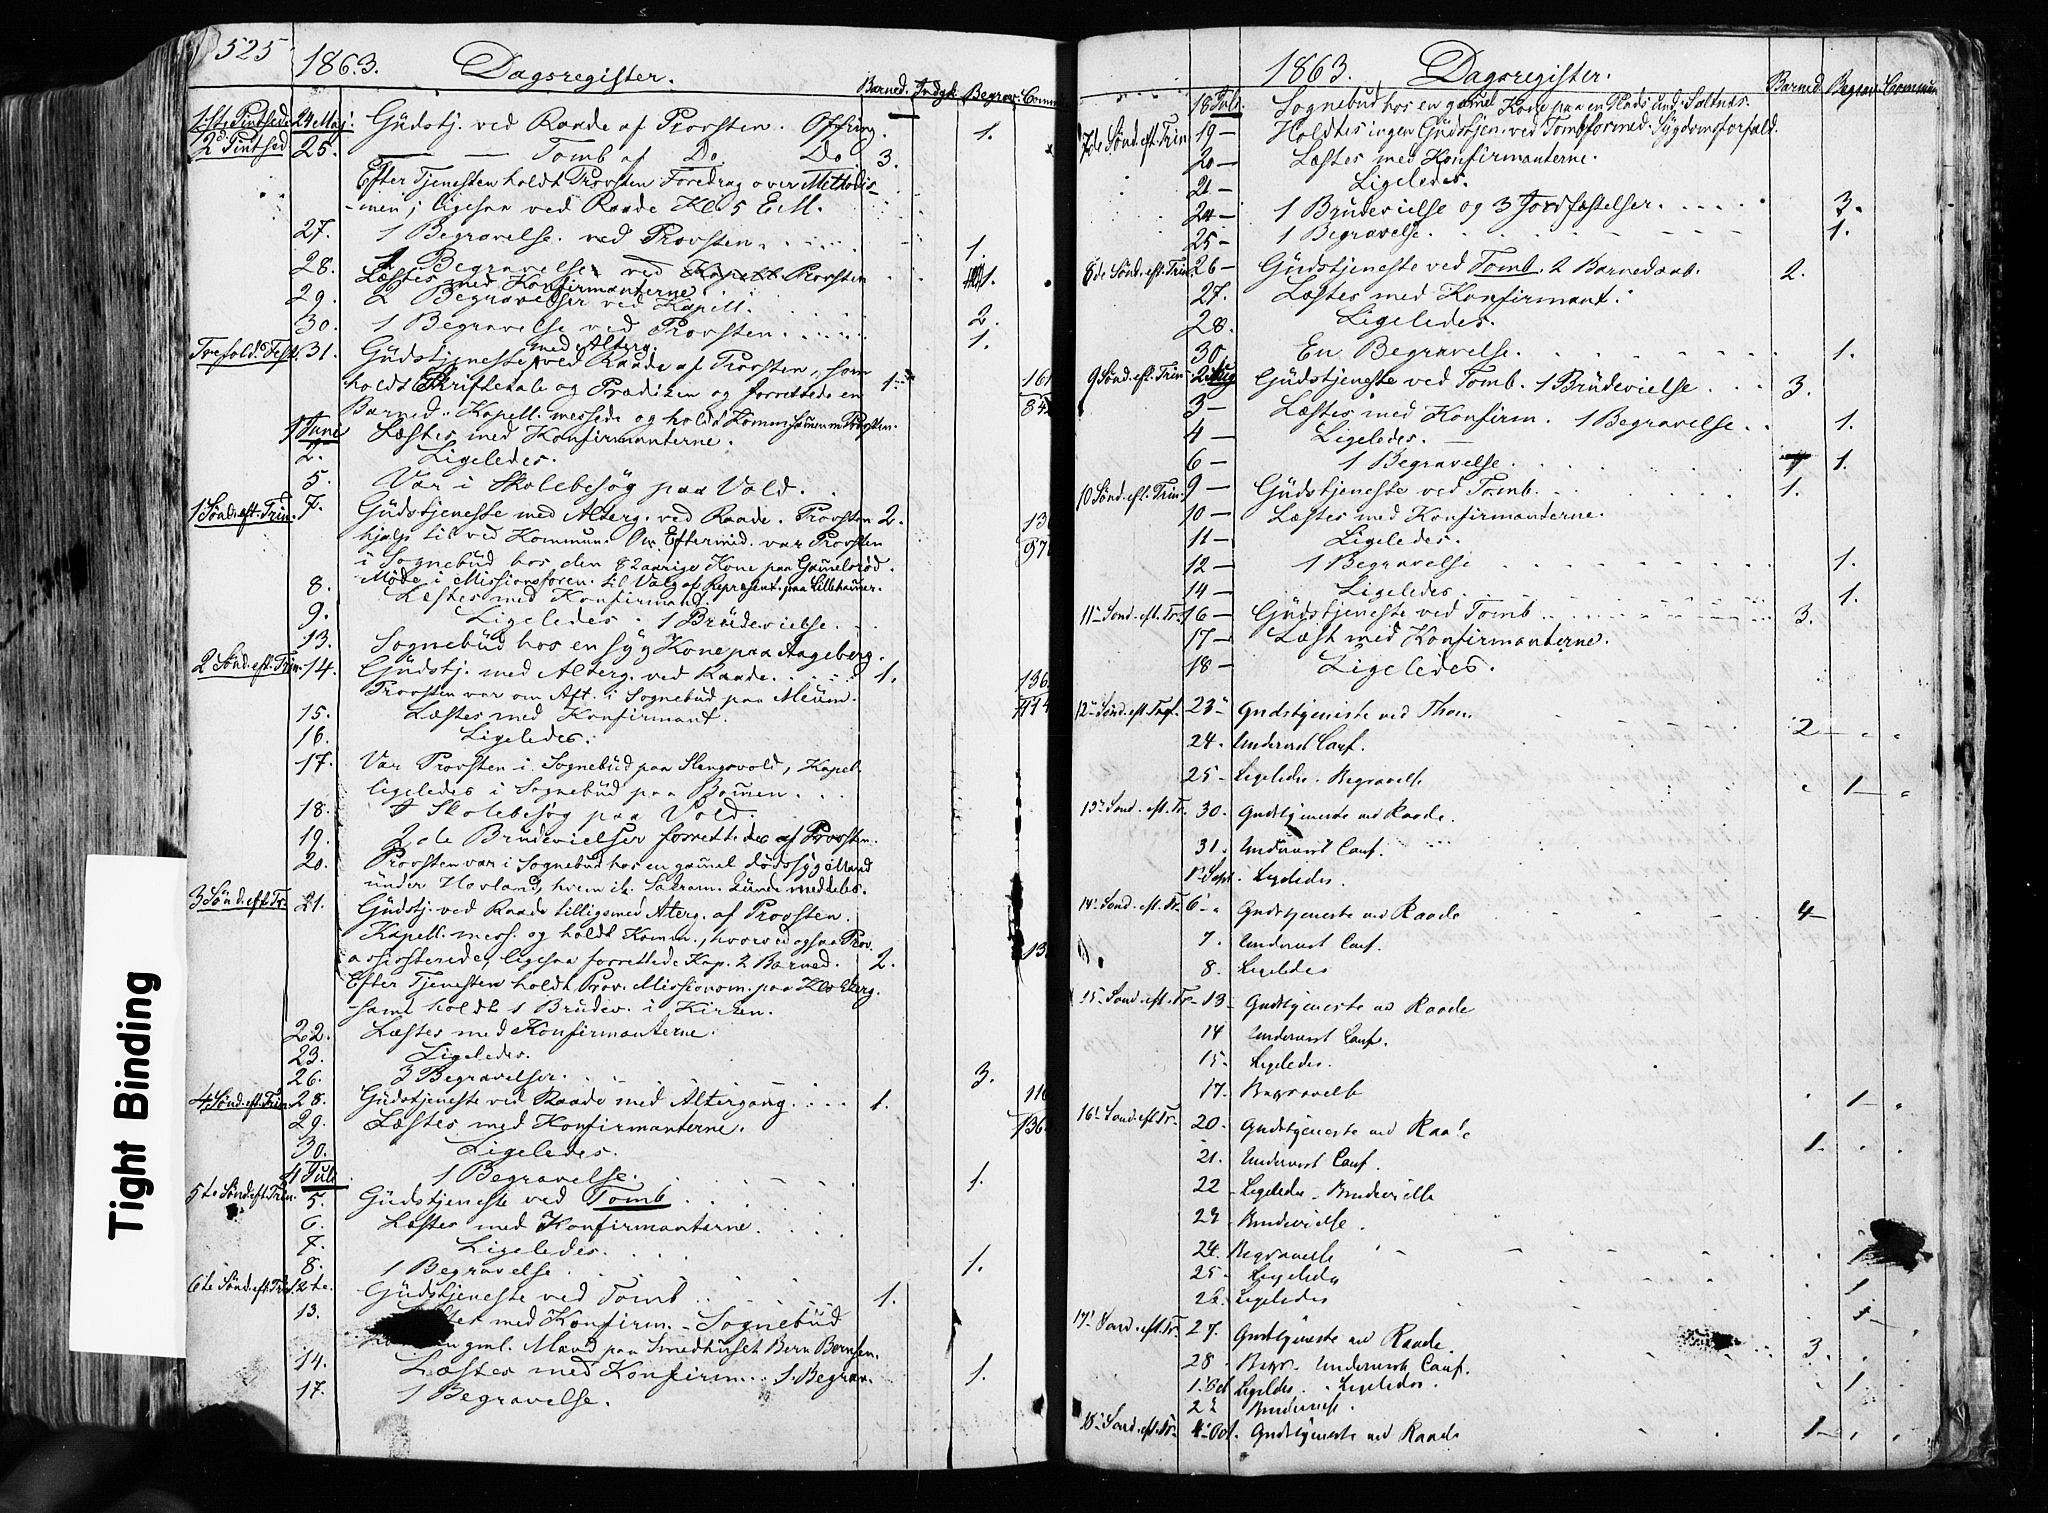 525 1863. Dagsregister.
Barned. Indgk. Begrav. Commu
1ste Pintsed. 24 Maj. Gudstj. ved Raade af Provsten. Offring. 1.
2d Pintsed 25. — — Tomb af Do. Do. 3.
Efter Tjenesten holdt Provsten Foredrag over Methodis-
-men; ligesaa ved Raade Kl. 5 E.M.
27. 1 Begravelse ved Provsten. 1.
28. 1 Begravelse ved Kapell. Provsten 1.
Læstes med Konfirmanterne
29. 2 Begravelser ved Kapell. 2.
30. 1 Begravelse ved Provsten. 1.
Trefold. Fest. 31. Gudstjeneste med Alterg. ved Raade af Provsten, som 161
holdt Skriftetale og Prædiken og forrettede en 1.
Barned. Kapell. messede og holdt Kommun. Provsten.
1 June Læstes med Konfirmanterne.
2. Ligeledes.
5. Var i Skolebesøg paa Vold.
1 Sønd. eft. Trin. 7. Gudstjeneste med Alterg. ved Raade. Provsten 2.
hjalp til ved Kommun. Om Eftermid. var Provsten
i Sognebud hos den 82aarige Kone paa Gamelsrød.
Møde i Missionsforen. til Valg af Represent. paa Lillehamer.
8. Læstes med Konfirmand.
9. Ligeledes. 1 Brudevielse.
13. Sognebud hos en syg Kone paa Aageberg.
2 Sønd. eft. Trin. 14. Gudstj. med Alterg. ved Raade. 1. 136
Provsten var om Aft. i Sognebud paa Meum.
15. Læstes med Konfirmant.
16. Ligeledes.
17. Var Provsten i Sognebud paa Slengsvold, Kapel.
ligeledes i Sognebud paa Bomen.
18. I Skolebesøg paa Vold.
19. 2de Brudevielser forrettedes af Provsten.
20. Provsten var i Sognebud hos en gamel dødssyg Mand
under Hovland, hvem ik. Sakram. kunde meddeles.
3 Sønd. eft. Tr. 21. Gudstj. ved Raade tilligemed Alterg. af Provsten.
Kapell. mess. og holdt Komm., hvorved ogsaa Prov.
assisterede, ligesaa forrettede Kap. 2 Barned. 2.
Efter Tjenesten holdt Prov. Missionsm. paa Kloster.
samt holdt 1 Brudev. i Kirken.
22. Læstes med Konfirmanterne.
23. Ligeledes.
26. 3 Begravelser. 3.
4 Sønd. eft. Trin. 28. Gudstjeneste ved Raade med Altergang. 1. 116
29. Læstes med Konfirmanterne. 136
30. Ligeledes.
4 Juli 1 Begravelse. 1.
5te Sønd. eft. Trin. 5. Gudstjeneste ved Tomb
6. Læstes med Konfirmanterne.
7. Ligeledes.
8. 1 Begravelse 1.
6te Sønd. eft. Trin. 12te. Gudstjeneste ved Tomb 1.
13. med Konfirm. - Sognebud
gml. Mand paa Smedhuset Bern Bernsen.
14. Læstes med Konfirm. 1 Begrav. 1.
17. 1 Begravelse.
1863. Dagsregister.
Barned. Begrav. Commun
18 Juli Sognebud hos en gamel Kone paa en Plads und. Saltnes.
7de Sønd. eft. Trin. 19 — Holdtes ingen Gudstjen. ved Tomb formed. Sygdomsforfald.
20 — Læstes med Konfirmanterne.
21 — Ligeledes.
24 — 1 Brudevielse og 3 Jordfæstelser. 3.
25 — 1 Begravelse. 1.
8de Sønd. eft. Trin. 26 — Gudstjeneste ved Tomb. 2 Barnedaab. 2.
27. Læstes med Konfirmant.
28. Ligeledes.
30. En Begravelse. 1.
9 Sønd. eft. Trin. 2 Aug Gudstjeneste ved Tomb. 1 Brudevielse 3.
3 — Læstes med Konfirm. 1 Begravelse 1.
4 — Ligeledes. —
6 — 1 Begravelse. 1.
10 Sønd. eft. Trin. 9 — Gudstjeneste ved Tomb. 1.
10 — Læstes med Konfirmanterne.
11 — Ligeledes.
12 — 1 Begravelse 1.
14 — Ligeledes. 1.
11te Sønd. eft. Tr. 16 — Gudstjeneste ved Tomb 3.
17 — Læst med Konfirmanterne.
18 — Ligeledes.
12te Sønd. eft. Tref. 23 Gudstjeneste ved Thom. 2
24. Undervist Conf.
25 - Ligeledes. Begravelse 1
13te Sønd. eft. Tr. 30. Gudstjeneste ved Raade.
31. Undervist Conf.
1 Sept. Ligeledes.
14 Sønd. eft. Tr. 6 Gudstjeneste ved Raade 4
7. Undervist Conf.
8. Ligeledes
15 Sønd. eft. Tr. 13 - Gudstjeneste ved Raade
14 Undervist Conf.
15. Ligeledes.
17. Begravelse 1
16 Sønd. eft. Tr. 20. Gudstjeneste ved Raade 1.
21. Undervist Conf.
22 - Ligeledes - Brudevielse
23 - Brudevielse.
24. Begravelse 1
25. Ligeledes 1
26. Ligeledes 1
17 Sønd. eft. Tr. 27. Gudstjeneste ved Raade. 3.
28. Begr. Undervist Conf. 1
1 Oct Ligeledes. Ligeledes.
2 Brudeviels.
18 Sønd. eft. Tr. 4 Oct. Gudstjeneste ved Raade 1
Tight Binding